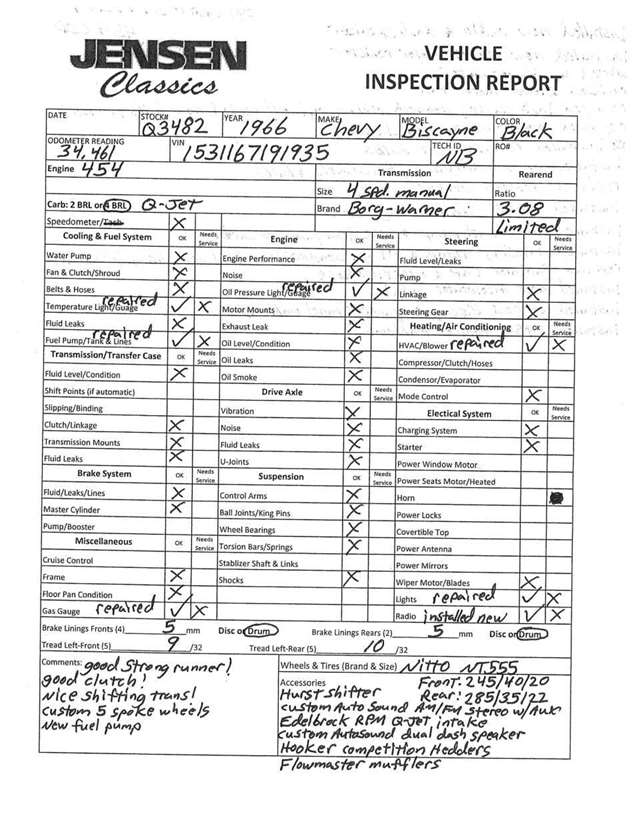 JENSEN
Classics
VEHICLE
INSPECTION REPORT
DATE STOCK# Q3482 YEAR 1966 MAKE Chevy MODEL Biscayne COLOR Black
ODOMETER READING 34,461 VIN 1531167191935 TECH ID NB RO#
Engine 454 Transmission Rearend
Size 4 spd. manual Ratio
Carb: 2 BRL or 4 BRL Q-Jet Brand Borg-Warner 3.08
Speedometer/Tach X Limited
Cooling & Fuel System OK Needs Service Engine OK Needs Service Steering OK Needs Service
Water Pump X Engine Performance X Fluid Level/Leaks
Fan & Clutch/Shroud X Noise X Pump
Belts & Hoses X Oil Pressure Light/Guage repaired ✓ X Linkage X
Temperature Light/Guage repaired ✓ X Motor Mounts X Steering Gear X
Fluid Leaks X Exhaust Leak X Heating/Air Conditioning OK Needs Service
Fuel Pump/Tank & Lines repaired ✓ X Oil Level/Condition X HVAC/Blower repaired ✓ X
Transmission/Transfer Case OK Needs Service Oil Leaks X Compressor/Clutch/Hoses
Fluid Level/Condition X Oil Smoke X Condensor/Evaporator
Shift Points (if automatic) Drive Axle OK Needs Service Mode Control X
Slipping/Binding Vibration X Electical System OK Needs Service
Clutch/Linkage X Noise X Charging System X
Transmission Mounts X Fluid Leaks X Starter X
Fluid Leaks X U-Joints X Power Window Motor
Brake System OK Needs Service Suspension OK Needs Service Power Seats Motor/Heated
Fluid/Leaks/Lines X Control Arms X Horn
Master Cylinder X Ball Joints/King Pins X Power Locks
Pump/Booster Wheel Bearings X Covertible Top
Miscellaneous OK Needs Service Torsion Bars/Springs X Power Antenna
Cruise Control Stablizer Shaft & Links Power Mirrors
Frame X Shocks X Wiper Motor/Blades X
Floor Pan Condition X Lights repaired ✓ X
Gas Gauge repaired ✓ X Radio installed new ✓ X
Brake Linings Fronts (4) 5 mm Disc or Drum Brake Linings Rears (2) 5 mm Disc or Drum
Tread Left-Front (5) 9 /32 Tread Left-Rear (5) 10 /32
Comments: good strong runner! Wheels & Tires (Brand & Size) Nitto NT555
good clutch! Accessories Front: 245/40/20
Nice shifting trans! Hurst shifter Rear: 285/35/22
custom 5 spoke wheels custom Auto Sound AM/FM Stereo w/Aux
New fuel pump Edelbrock RPM Q-Jet intake
custom AutoSound dual dash speaker
Hooker competition Hedders
Flowmaster mufflers